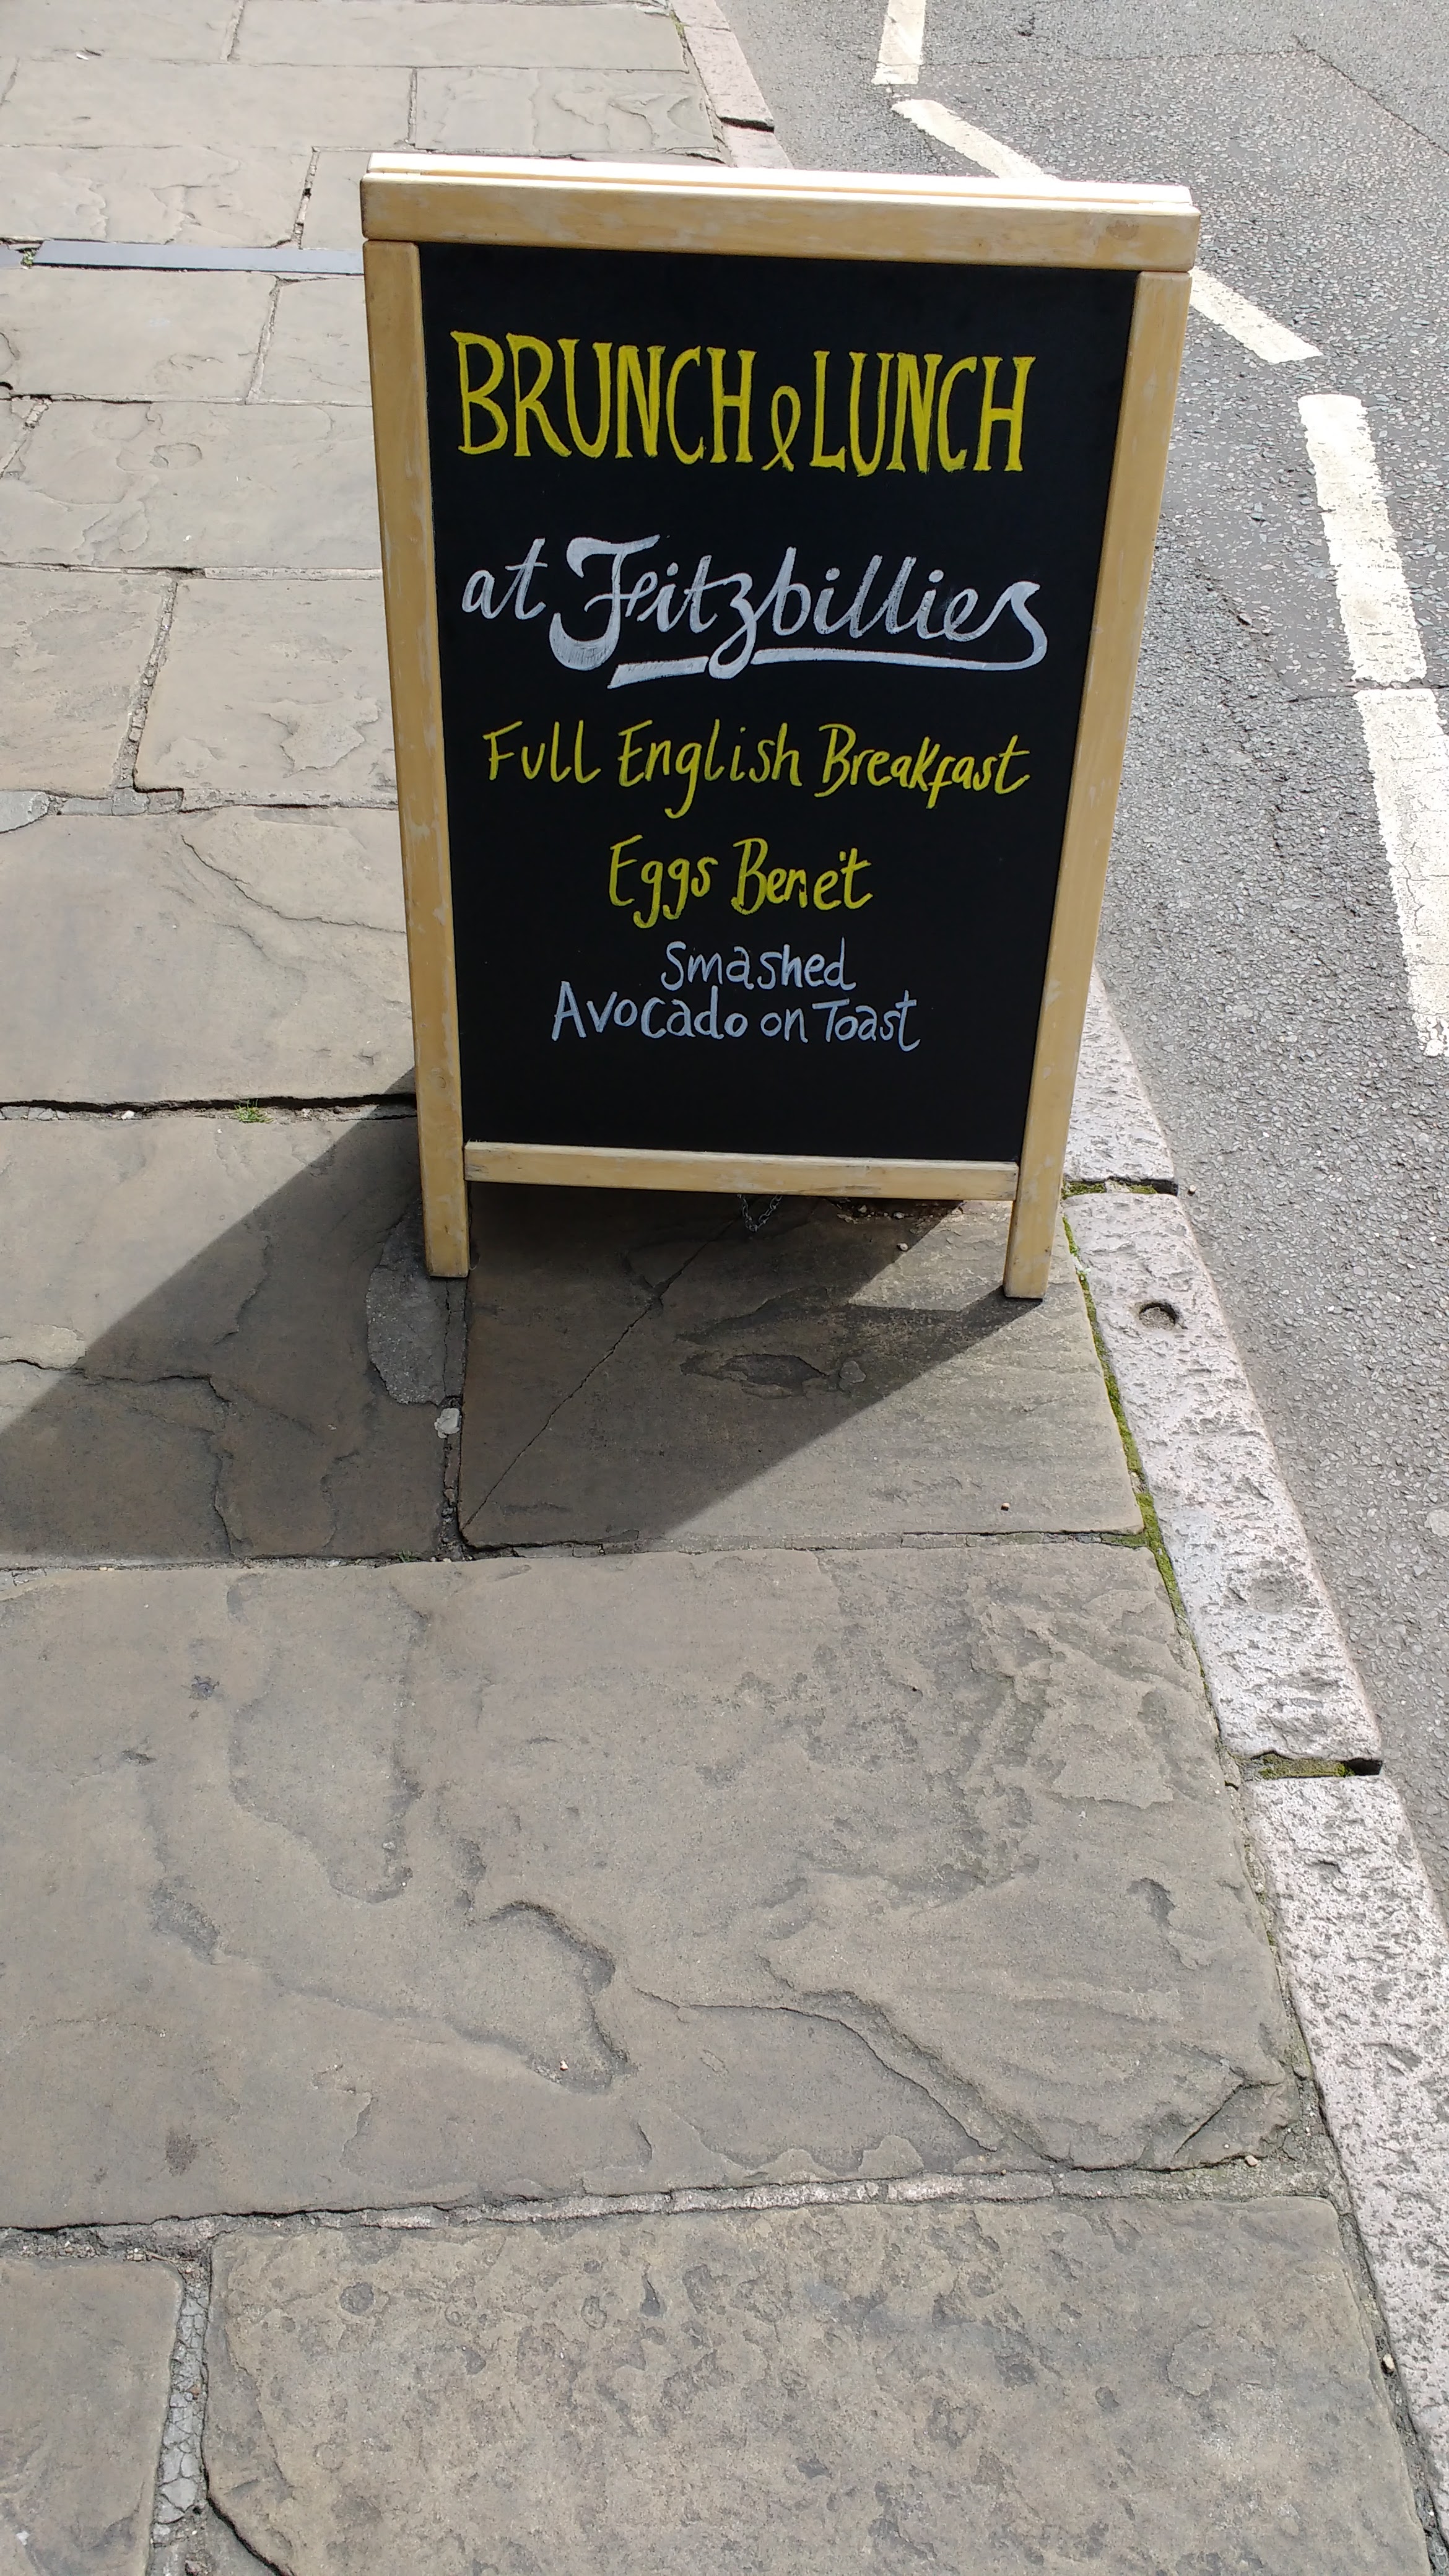 BRUNCH & LUNCH
at Fitzbillies
Full English Breakfast
Eggs Benet
Smashed
Avocado on Toast